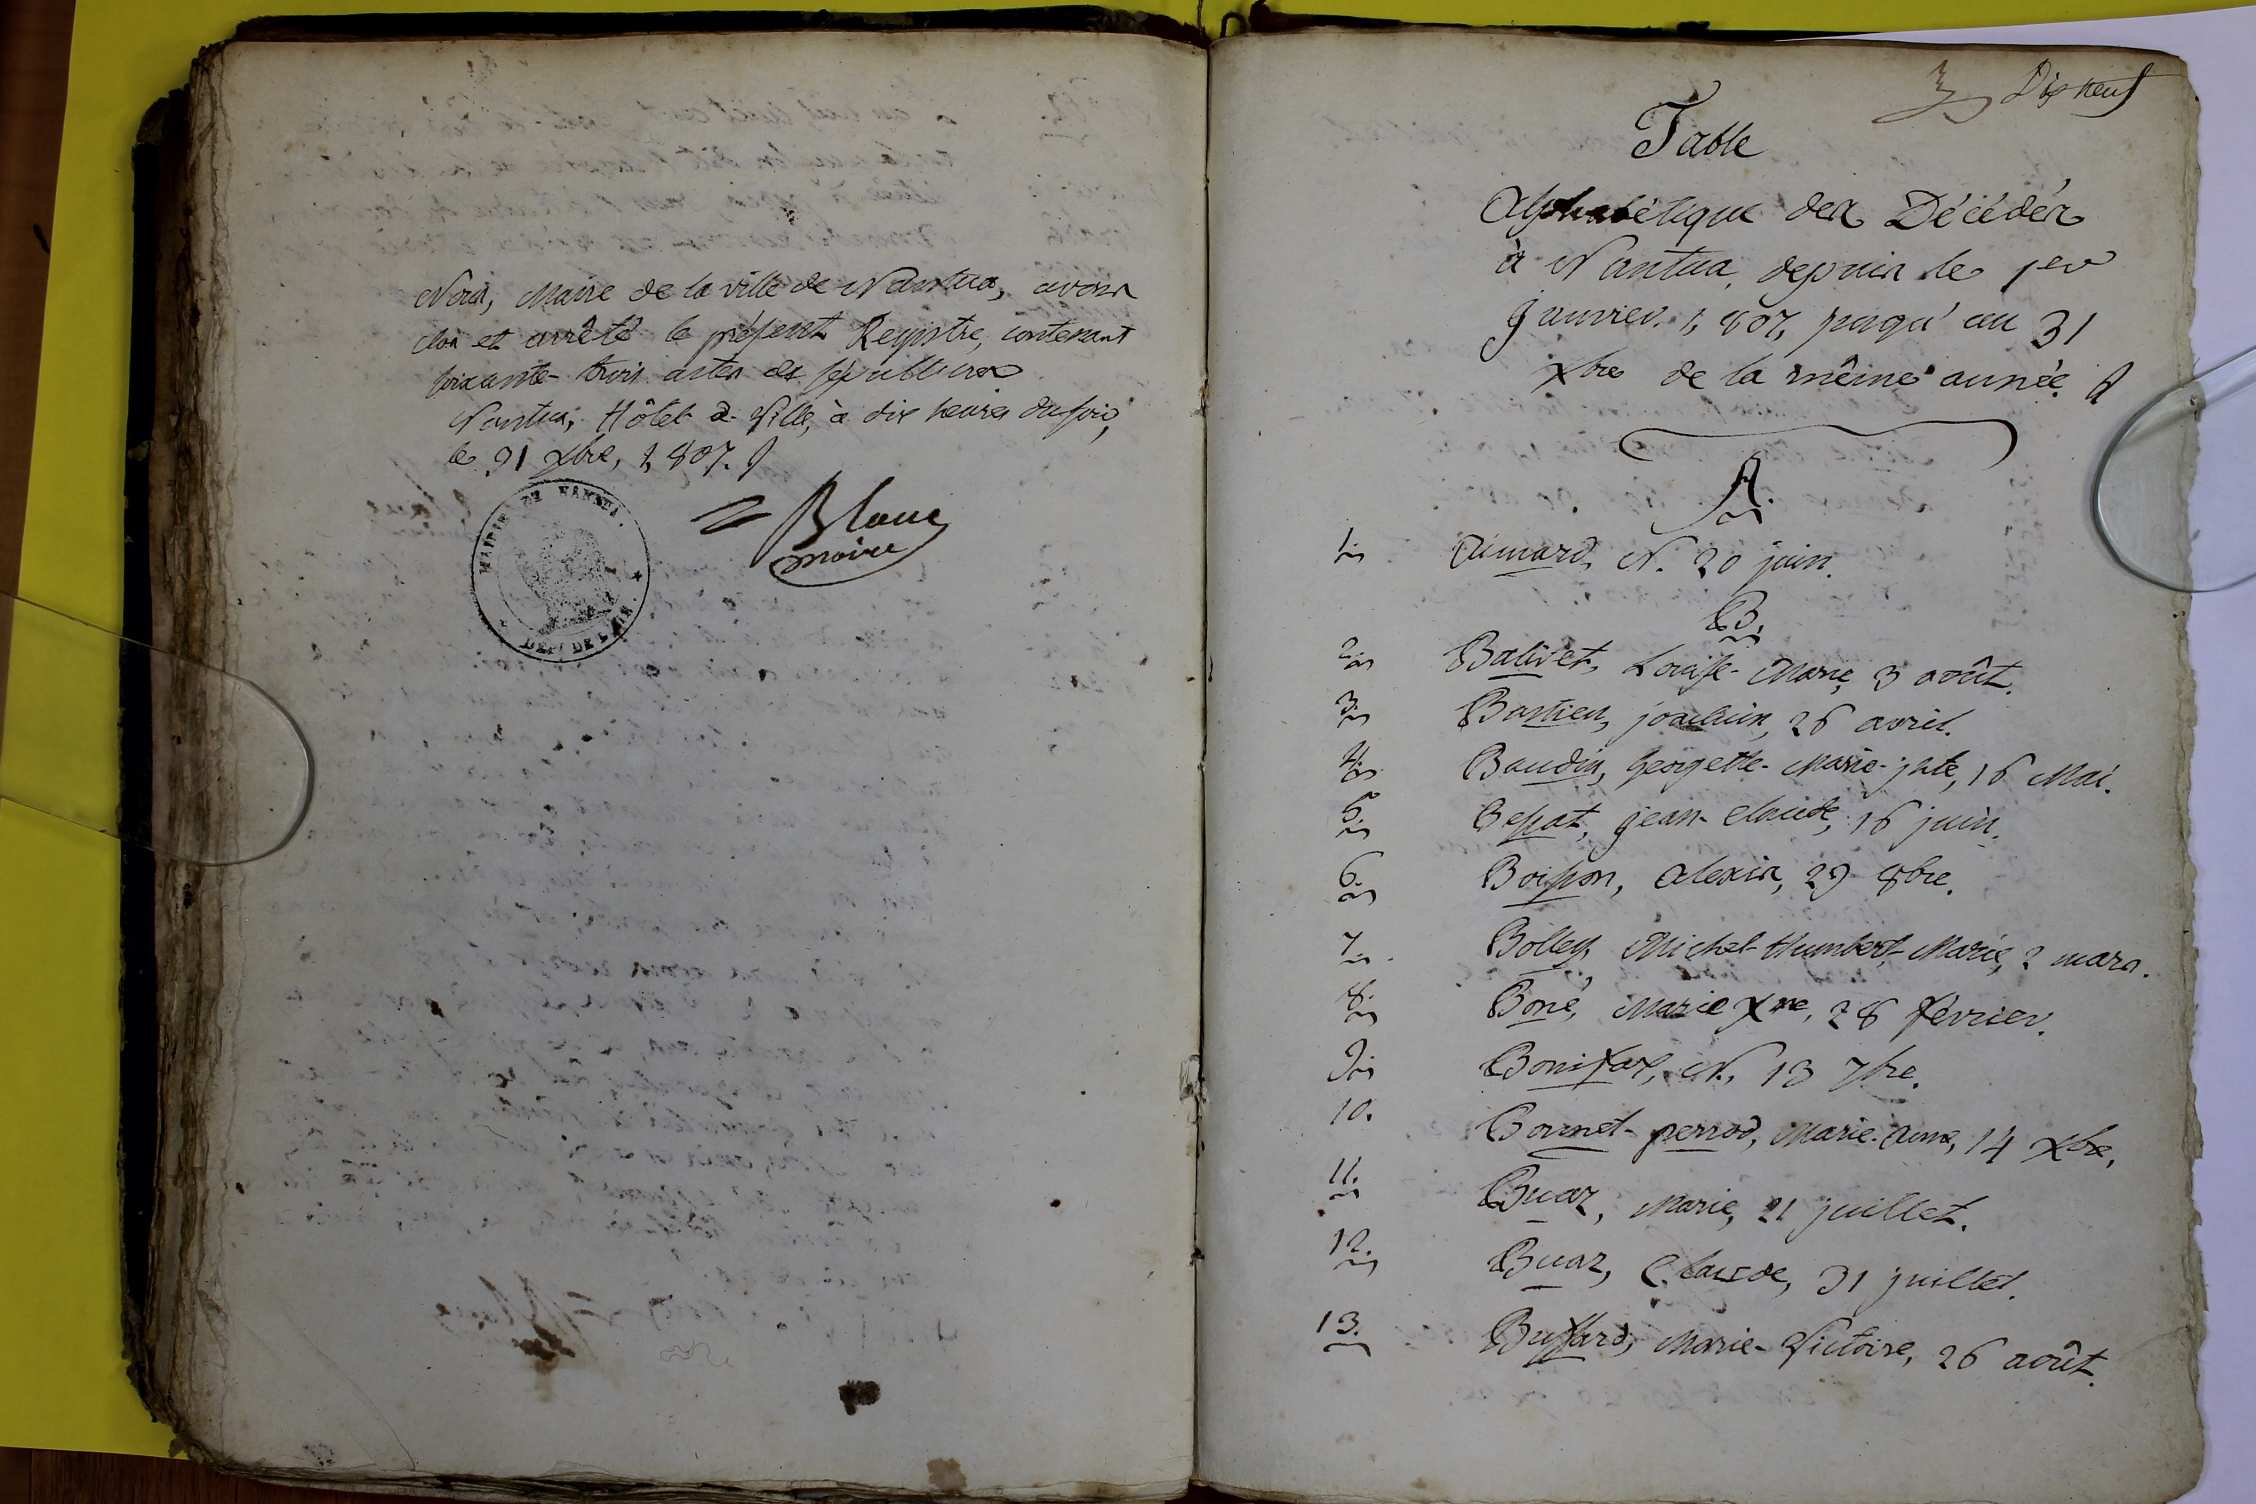 Nous, Maire de la ville de Nantua, avons
clos et arrêté le présent Registre, contenant
soixante-trois actes de sépultures
Nantua, Hôtel de Ville, à dix heures du soir,
le 31 Xbre, 1,807.
MAIRIE DE NANTUA.
DEPT DE L'AIN.
Blanc
maire
Dix neuf
Table
Alphabétique des Décédés
à Nantua, depuis le 1er
Janvier 1,807, jusqu'au 31
Xbre de la même année.
A.
1. Aimard, N. 20 juin.
B.
2. Balivet, Louise-Marie, 3 août.
3. Bastien, joachim, 26 avril.
4. Baudin, Georgette-Marie-jste, 16 Mai.
5. Bessat, Jean-Claude, 16 juin.
6. Boisson, Alexis, 29 8bre.
7. Bolley, Michel-Humbert-Marie, 2 mars.
8. Boné, Marie Xne, 28 février.
9. Bonifax, N., 13 7bre.
10. Bournet-perrod, Marie-Anne, 14 Xbre.
11. Buaz, Marie, 21 juillet.
12. Buaz, Claude, 31 juillet.
13. Buffard, Marie-Victoire, 26 août.